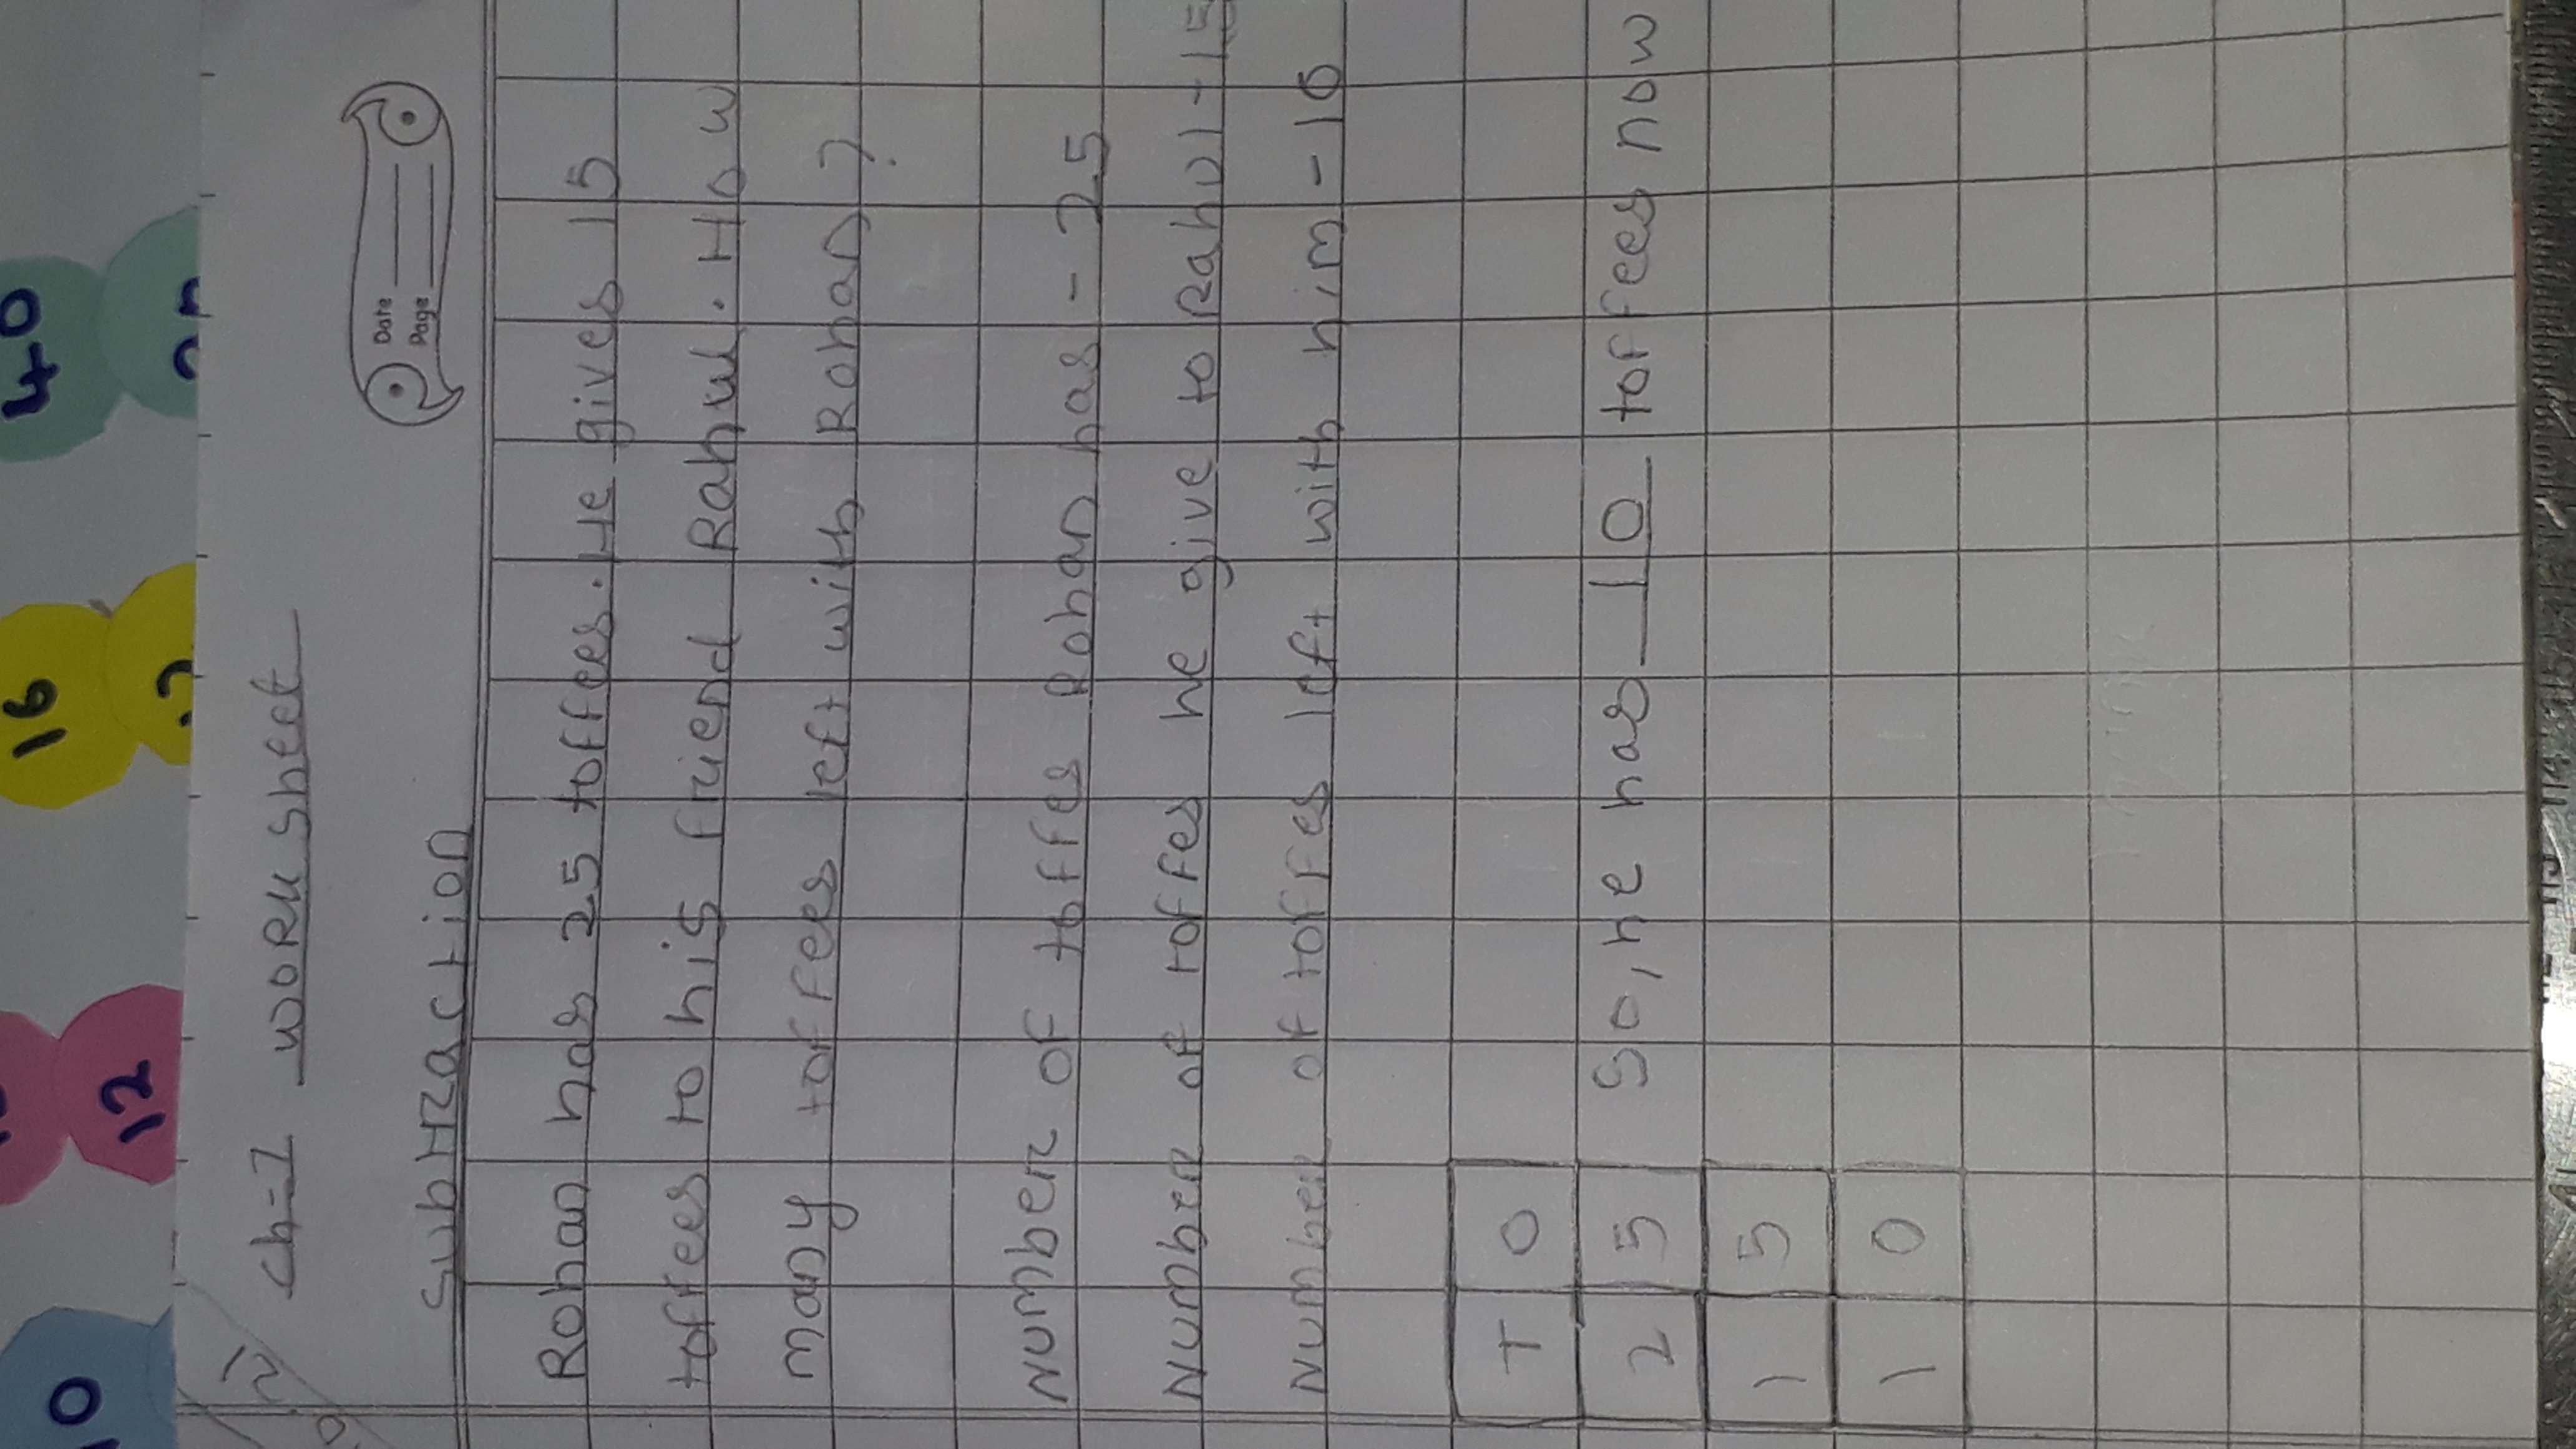 40
16
12
10
Ch-7 worksheet
Date
Page
Subtraction
Rohan has 25 toffees. He gives 15
toffees to his friend Rahul. How
many toffees left with Rohan?
Number of toffes Rohan has - 25
Number of toffes he give to Rahul - 15
Number of toffes left with him - 10
T O
2 5 So, he has 10 toffees now
1 5
1 0